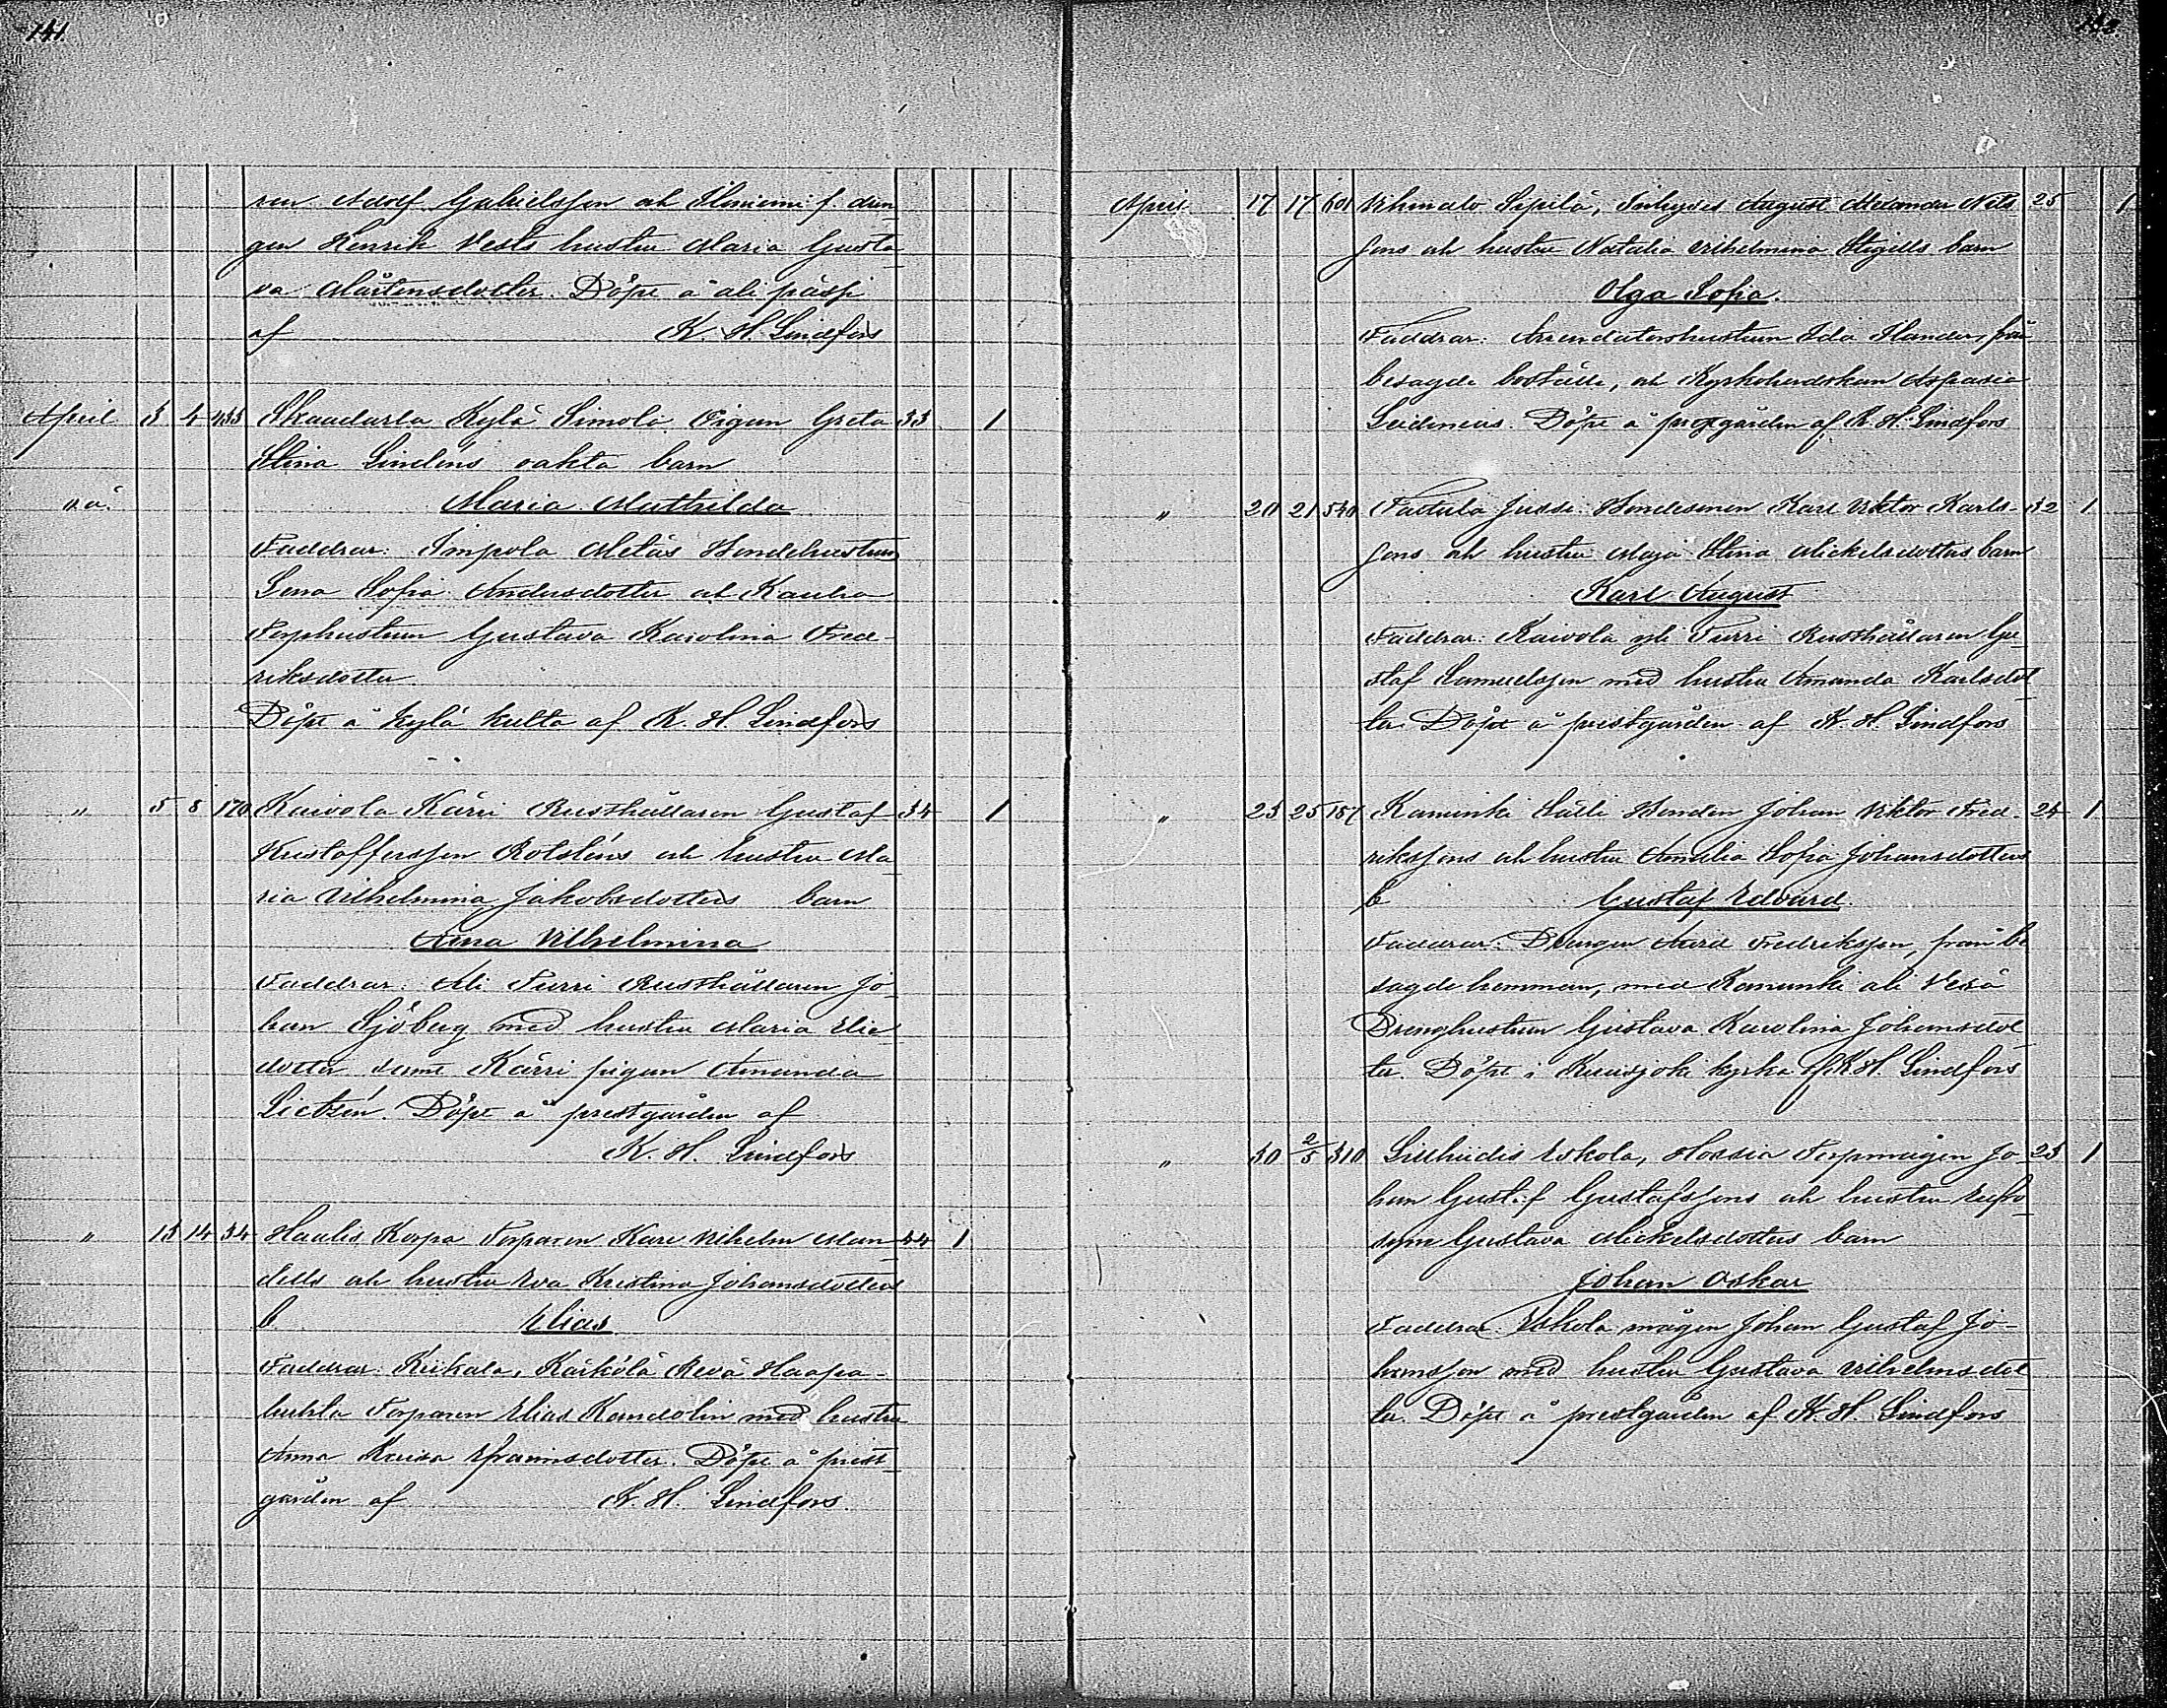 141.
ren Adolf Gabrielsson och Iloniemi f. drän
gen Henrik Vests hustru Maria Gusta
va Mårtensdotter. Döpt å ali pässi
af K. H. Lindfors
April 3 4 433 Skaadarla Kylä Simola Pigan Greta 33 1
Stina Lindéns oäkta barn
o.ä. Maria Mathilda
Faddrar: Impola Metäs Bondehustrun
Lena Sofia Andersdotter och Kauha
Torphustrun Gustava Karolina Fred-
riksdotter
Döpt å Kylä kulta af K. H. Lindfors
" 5 8 170 Kaivola Kärri Rusthållaren Gustaf 34 1
Kristoffersson Rolsténs och hustru Ma
ria Vilhelmina Jakobsdotters barn
Anna Vilhelmina
Faddrar: Ali Furri Rusthållaren Jo
han Sjöberg med hustru Maria Elie
dotter samt Kärri pigan Amanda
Lietzén. Döpt å prestgården af
K. H. Lindfors
" 13 14 34 Haalis Korpa Torparen Karl Vilhelm Man 44 1
dells och hustru Eva Kristina Johansdotters
b. Elias
Faddrar: Krikala, Kärkölä Revä Haapa-
huhta Torparen Elias Kandolin med hustru
Anna Lovisa Efraimsdotter. Döpt å prest
gården af K. H. Lindfors.
April 17 17 601 Vihmalo Sepilä, Inhyses August Alexander Nils 25 1
sons och hustru Natalia Vilhelmina Stigells barn
Olga Sofia.
Faddrar: Arrendatorshustrun Ida Ilander, från
besagde boställe, och Kyrkoherdskan Aspasia
Leidenius. Döpt å prestgården af K. H. Lindfors
" 20 21 540 Tuatula Jussi Bondesonen Karl Viktor Karls- 32 1
sons och hustru Maja Stina Mickelsdotters barn
Karl August
Faddrar: Kaivola yli Furri Rusthållaren Gu
staf Samuelsson med hustru Amanda Karlsdot
ter. Döpt å prestgården af K. H. Lindfors
" 23 25 157 Kanunki Sälli Bonden Johan Viktor Fred- 24 1
rikssons och hustru Amalia Sofia Johansdotters
b Gustaf Edvard.
Faddrar: Drengen Aurd Fredriksson, från be
sagde hemman, med Kanunki ali Vesä
Drenghustrun Gustava Karolina Johansdot
ter. Döpt i Kuusjoki kyrka af K. H. Lindfors
" 30 2/5 310 Liehudis Eskola, Hossia Torpmågen Jo 23 1
han Gustaf Gustafssons och hustru Eufro
syne Gustava Mickelsdotters barn
Johan Oskar
Faddrar: Eskola mågen Johan Gustaf Jo-
hansson med hustru Gustava Vilhelmsdot
ter. Döpt å prestgården af K. H. Lindfors